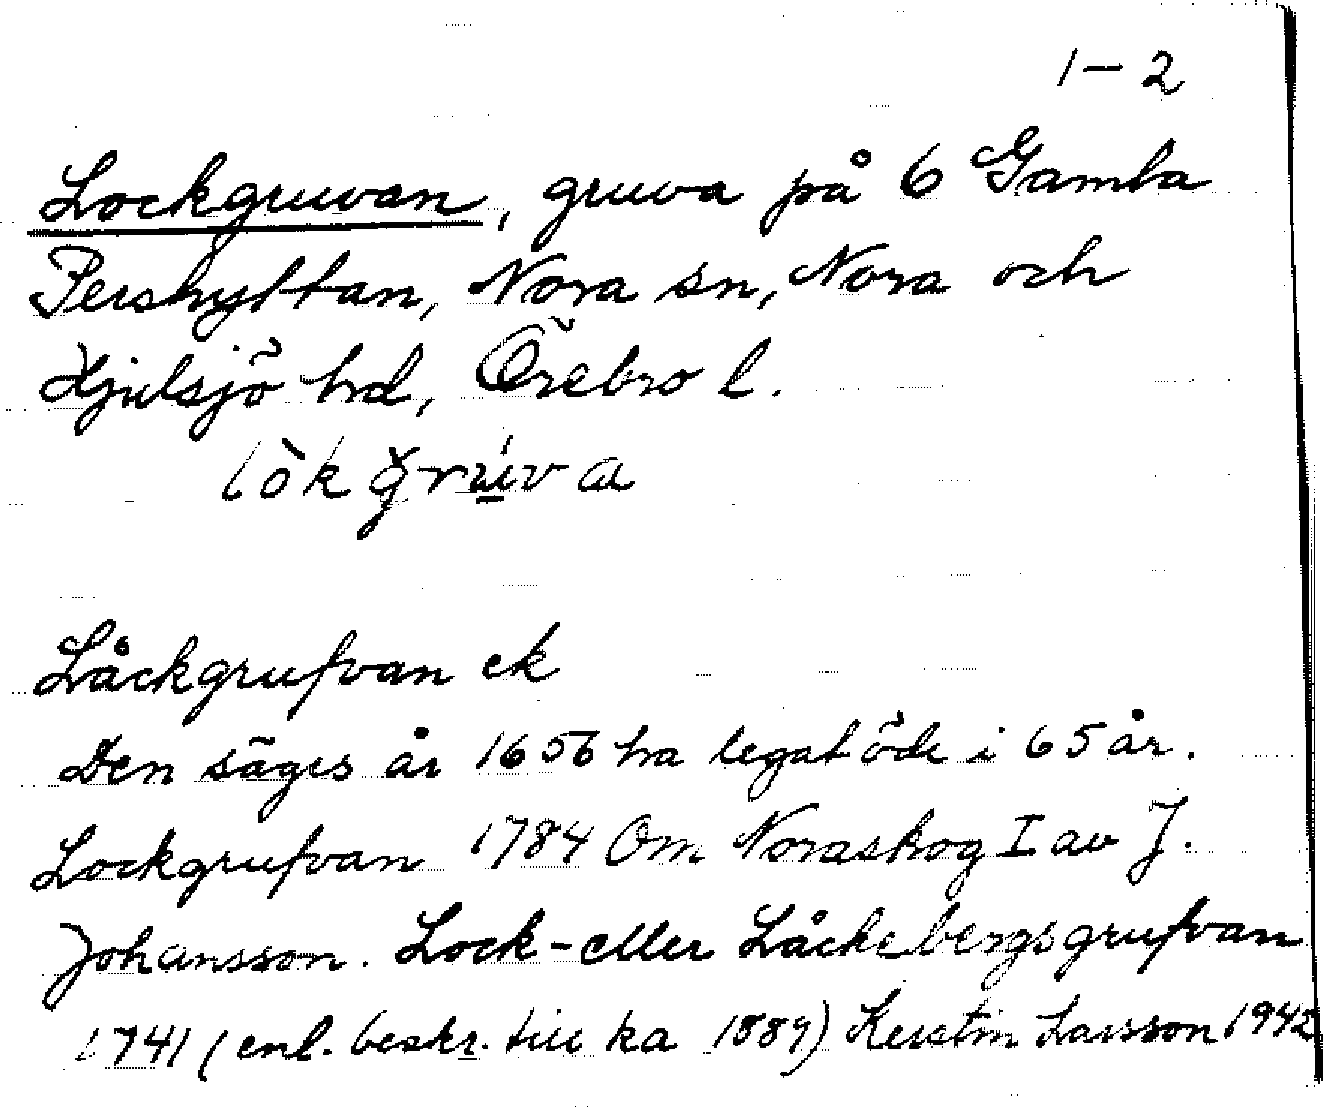 1-2
Lockgruvan, gruva på 6 Gamla
Pershyttan, Nora sn, Nora och
Hjulsjö hd, Örebro l.
lòkgrúva
Låckgrufvan ek
Den säges år 1656 ha legat öde i 65 år.
Lockgrufvan 1784 Om Noraskog I av J.
Johansson. Lock- eller Låckebergsgrufvan
1741 (enl. beskr. till ka 1889) Kerstin Larsson 1942